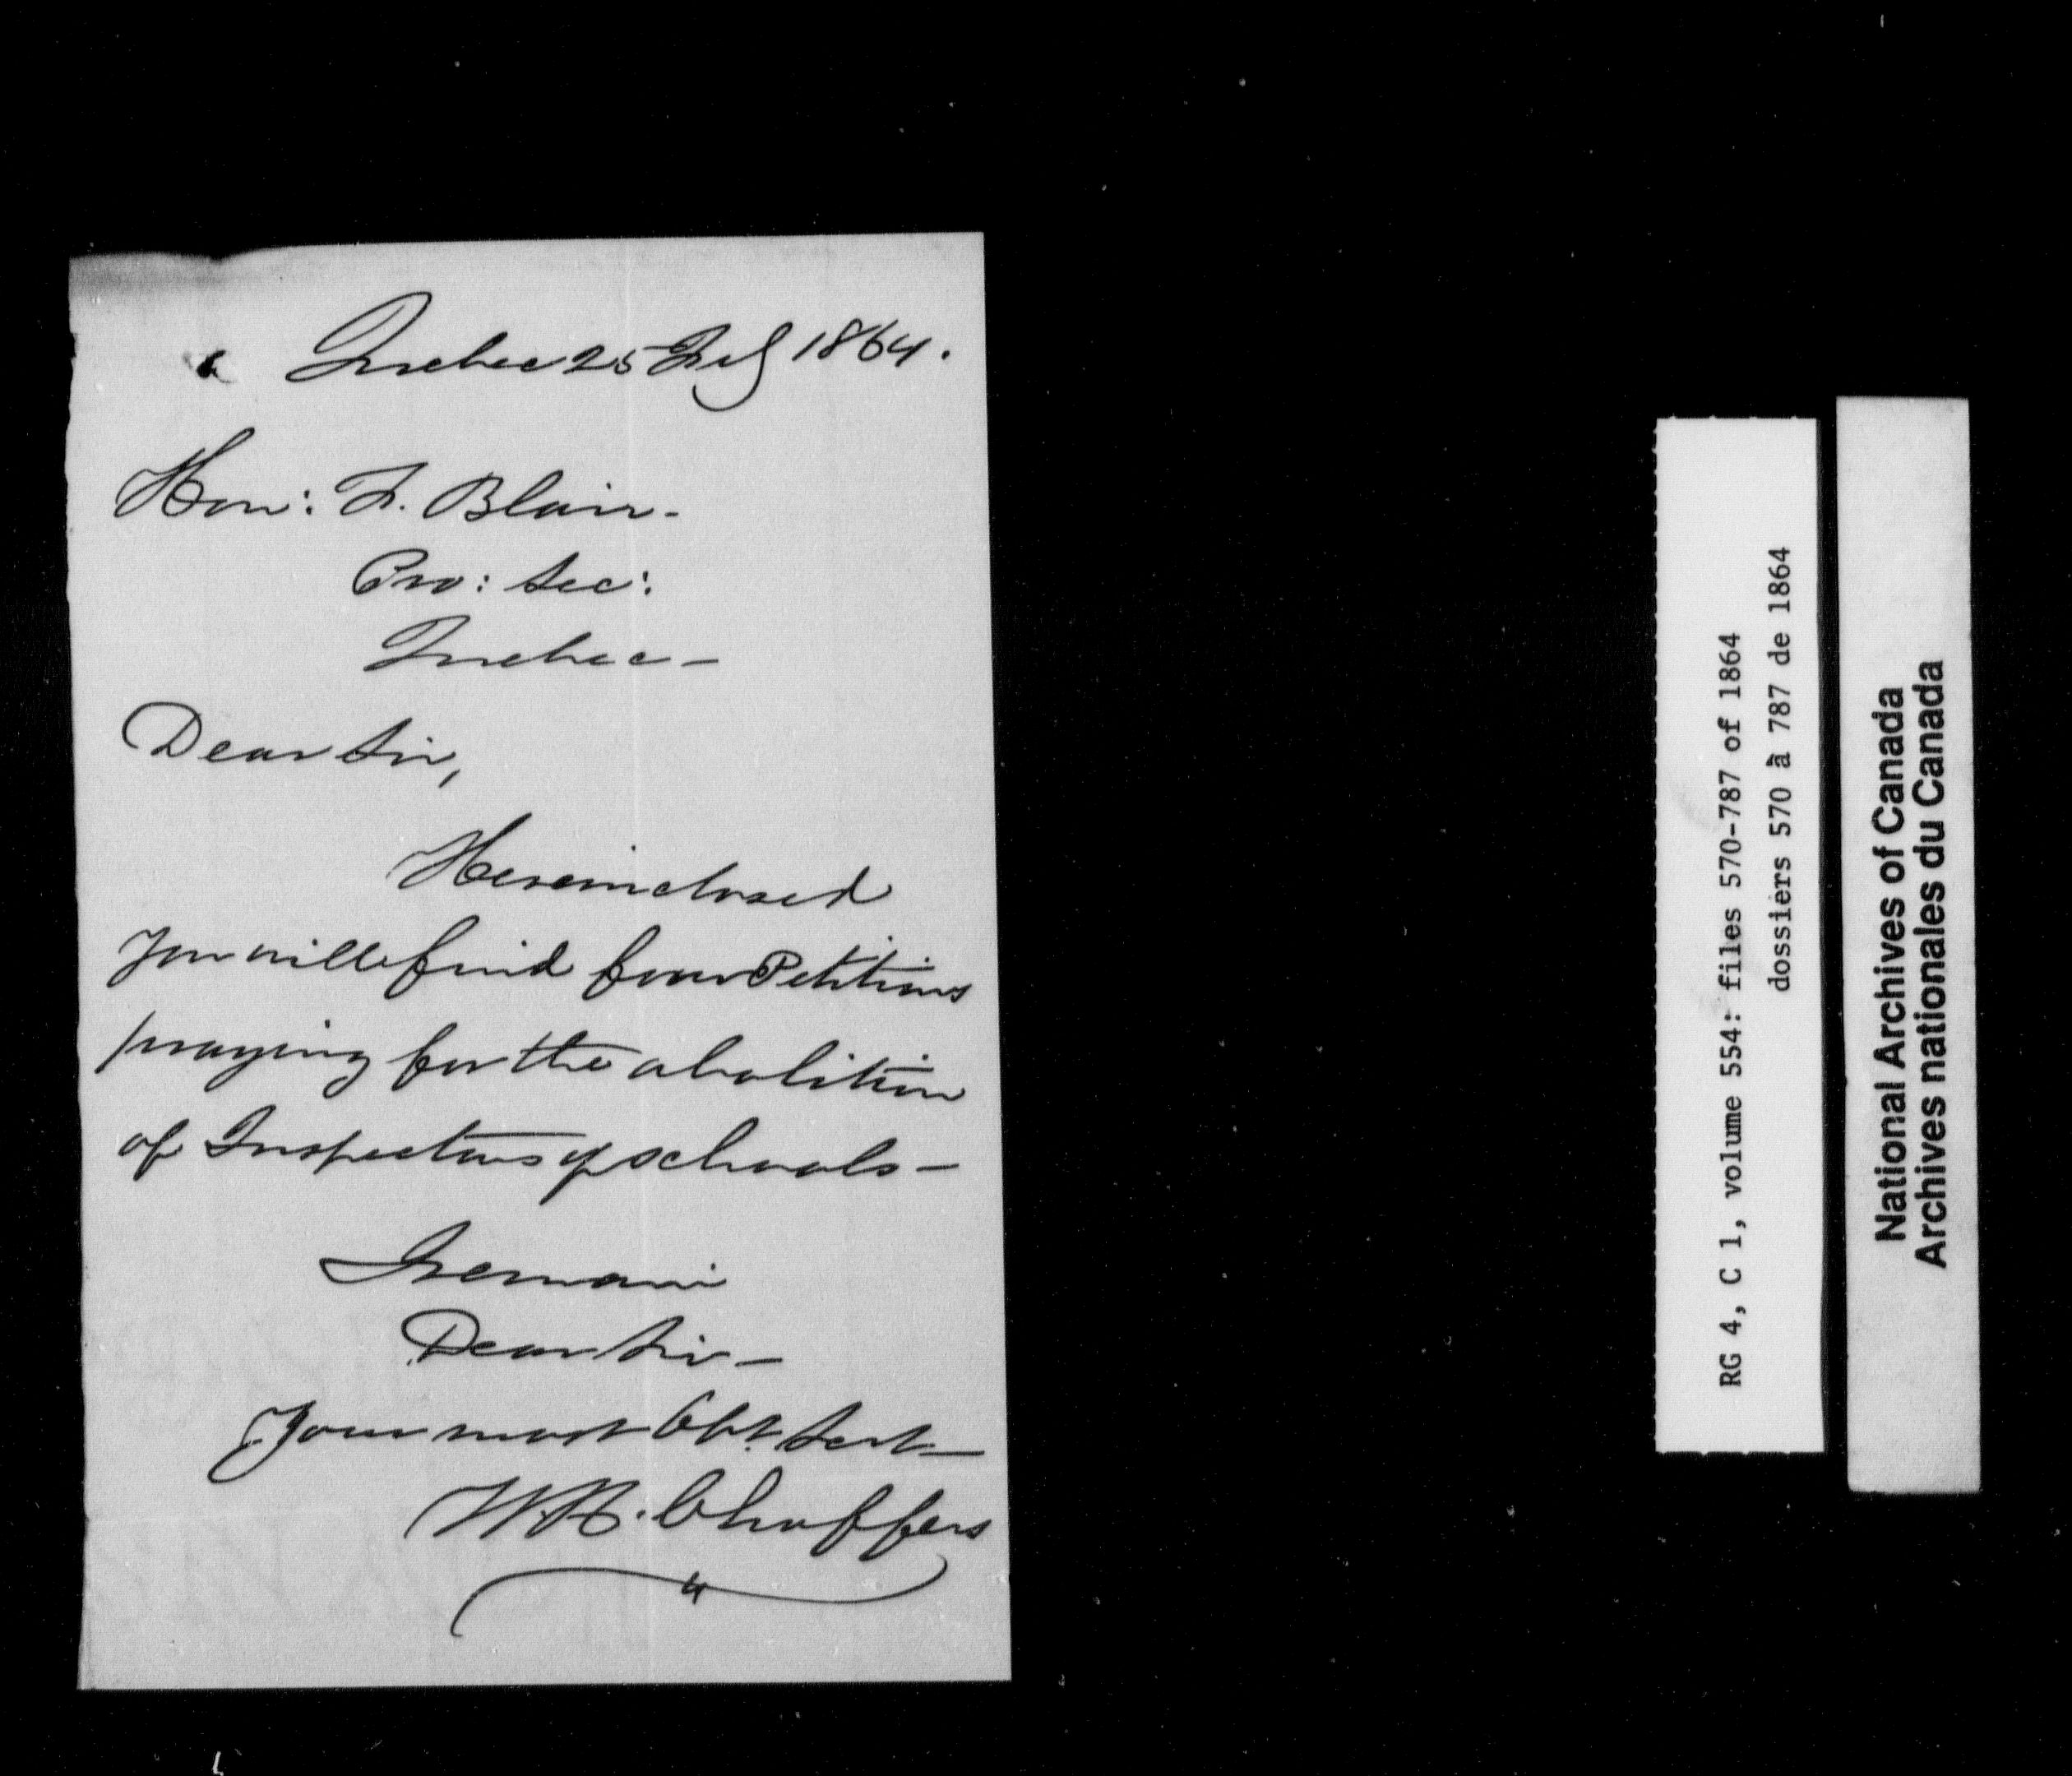 Quebec 25 Feby 1864.
Hon: F. Blair-
Pro: Sec:
Quebec-
Dear Sir,
Hereinclosed
you will find four Petitions
praying for the abolition
of Inspectors of schools-
I remain
Dear Sir-
Your most Obt. Servt-
W. H. Chaffers
RG 4, C 1, volume 554: files 570-787 of 1864
dossiers 570 à 787 de 1864
National Archives of Canada
Archives nationales du Canada